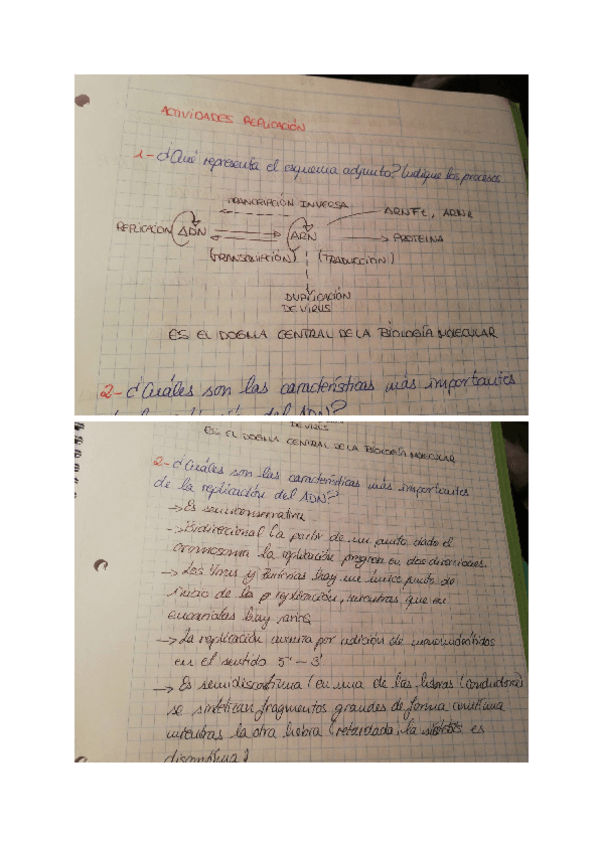 ACTIVIDADES REPLICACIÓN
1- ¿Qué representa el esquema adjunto? Indique los procesos
TRANCRIPCIÓN INVERSA
ARNt, ARNr
REPLICACIÓN ADN ARN PROTEINA
(TRANSCRIPCIÓN) (TRADUCCIÓN)
DUPLICACIÓN
DE VIRUS
ES EL DOGMA CENTRAL DE LA BIOLOGÍA MOLECULAR
2- ¿Cuáles son las características más importantes
de la replicación del ADN?
DE VIRUS
ES EL DOGMA CENTRAL DE LA BIOLOGÍA MOLECULAR
2- ¿Cuáles son las características más importantes
de la replicación del ADN?
→ Es semiconservativa
→ Bidirecional (a partir de un punto dado el
cromosoma la replicación progresa en dos direcciones.
→ Los Virus y bacterias hay un único punto de
inicio de la replicación, mientras que en
eucariotas hay varios
→ La replicación avanza por adición de mononucleótidos
en el sentido 5' - 3'
→ Es semidiscontinua (en una de las hebras (conductora)
se sintetizan fragmentos grandes de forma continua
mientras la otra hebra (retardada, la síntesis es
discontinua)